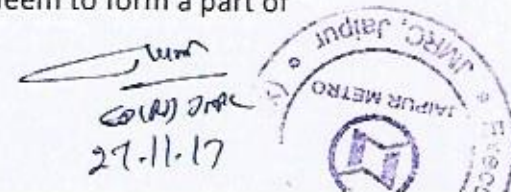 eem to form a part of
27.11.17
JMRC, Jaipur
JAIPUR METRO
Execu